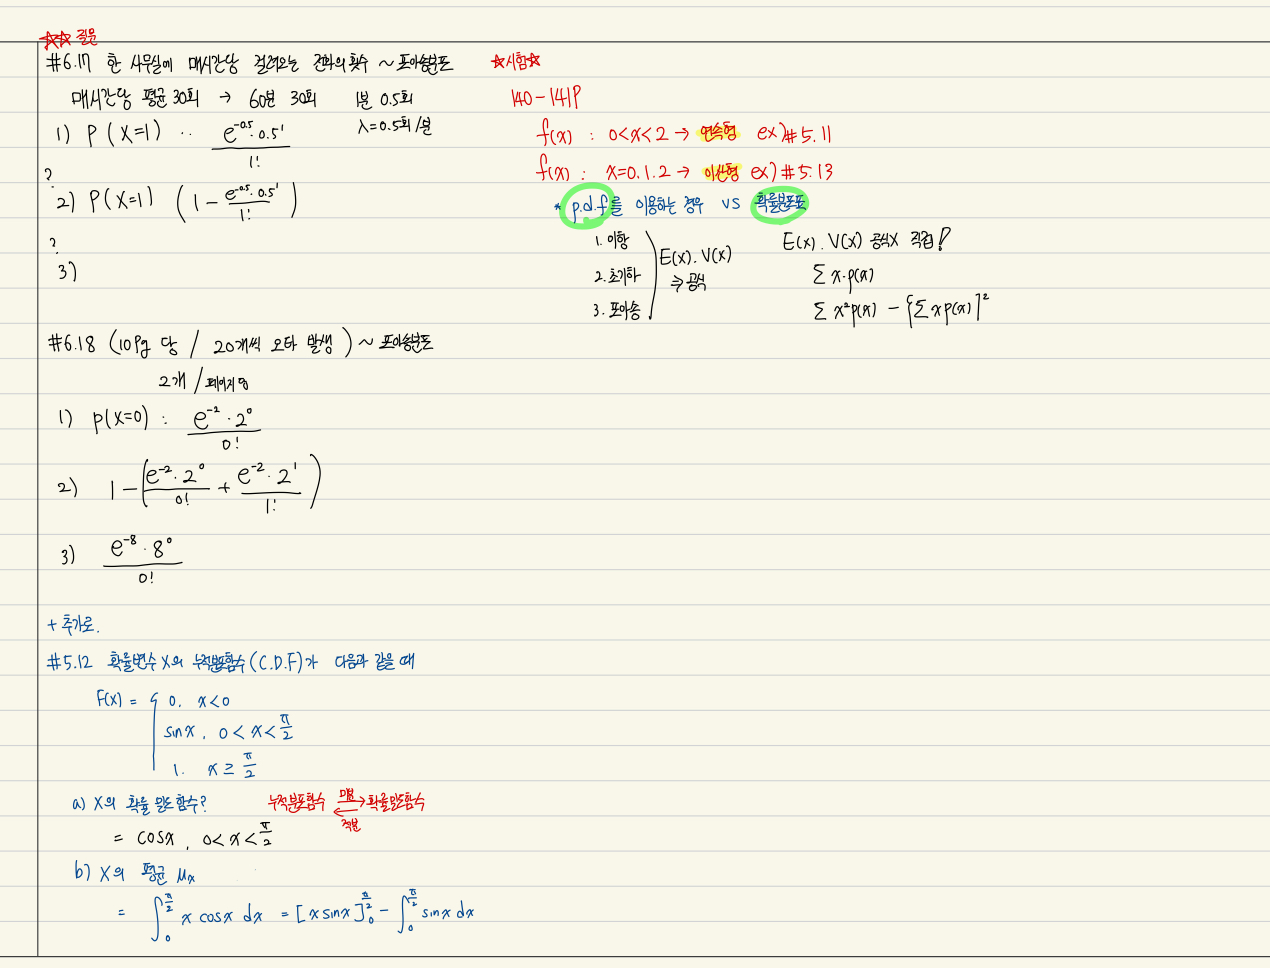 ☆☆ 질문
#6.17 한 사무실에 매시간당 걸려오는 전화의 횟수 ~ 포아송분포
매시간당 평균 30회 → 60분 30회 1분 0.5회
λ=0.5회/분
1) P(X=1) ·· e^-0.5·0.5^1 / 1!
?
2) P(X=1) (1 - e^-0.5·0.5^1 / 1!)
?
3)
#6.18 (10pg 당 / 20개씩 오타 발생) ~ 포아송분포
2개/페이지당
1) p(X=0) : e^-2·2^0 / 0!
2) 1-(e^-2·2^0 / 0! + e^-2·2^1 / 1!)
3) e^-8·8^0 / 0!
+ 추가로.
#5.12 확률변수 X의 누적분포함수(C.D.F)가 다음과 같을 때
F(x) = { 0. x<0
sinx, 0<x<π/2
1. x≥π/2
a) X의 확률 밀도함수? 누적분포함수 미분→ ←적분 확률밀도함수
= cosx, 0<x<π/2
b) X의 평균 μx
= ∫_0^π/2 x cosx dx = [x sinx]_0^π/2 - ∫_0^π/2 sinx dx
☆시험☆
140-141P
f(x) : 0<x<2 → 연속형 ex)#5.11
f(x) : x=0.1.2 → 이산형 ex)#5.13
* p.d.f를 이용하는 경우 VS 확률분포표
1. 이항
2. 초기하
3. 포아송
E(x). V(x)
⇒공식
E(x). V(x) 공식X 직접!
∑x·p(x)
∑x²p(x) - {∑xp(x)]²